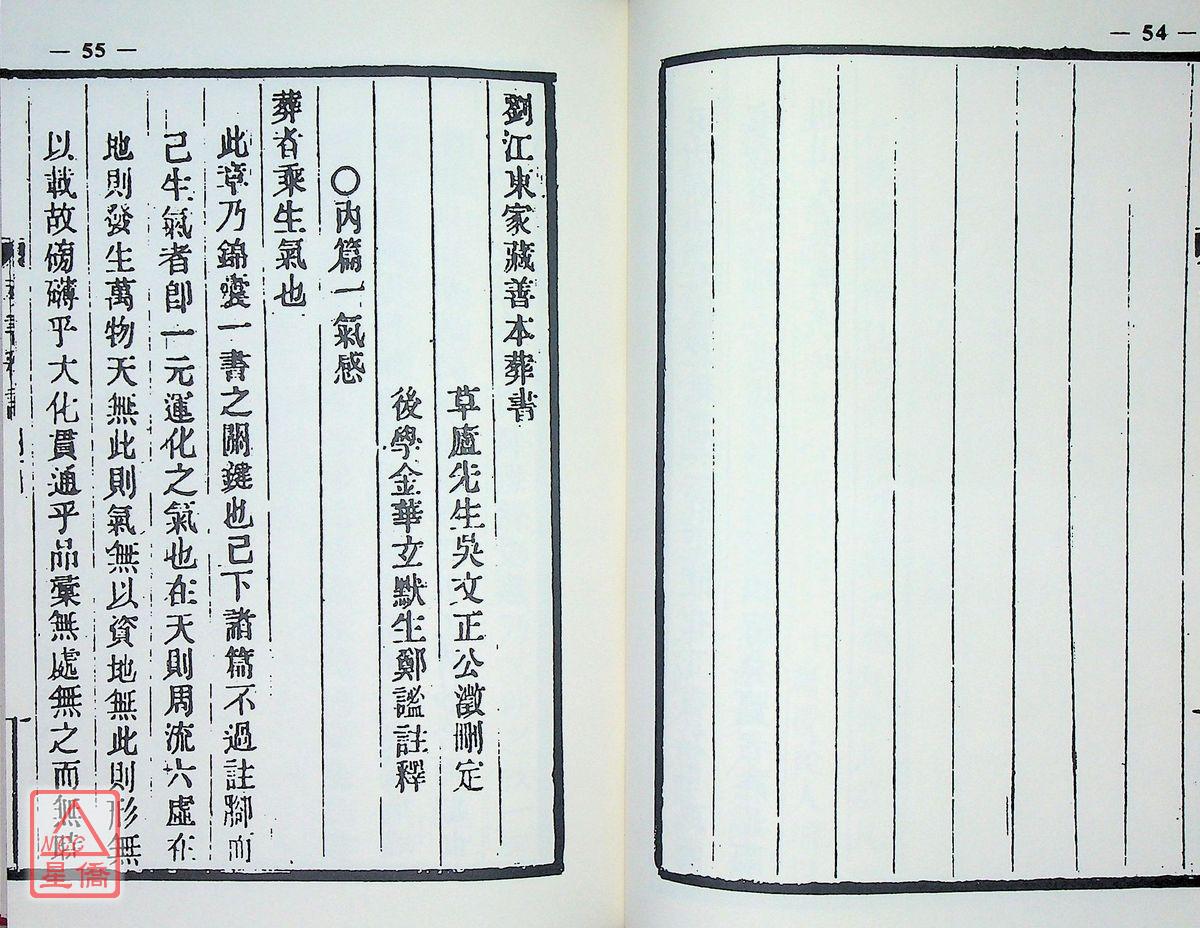 — 54 —
— 55 —
劉江東家藏善本葬書
草廬先生吳文正公澂刪定
後學金華玄默生鄭謐註釋
○內篇一氣感
葬者乘生氣也
此章乃錦囊一書之關鍵也已下諸篇不過註腳而
已生氣者卽一元運化之氣也在天則周流六虛在
地則發生萬物天無此則氣無以資地無此則形無
以載故磅礴乎大化貫通乎品彙無處無之而無時
星僑